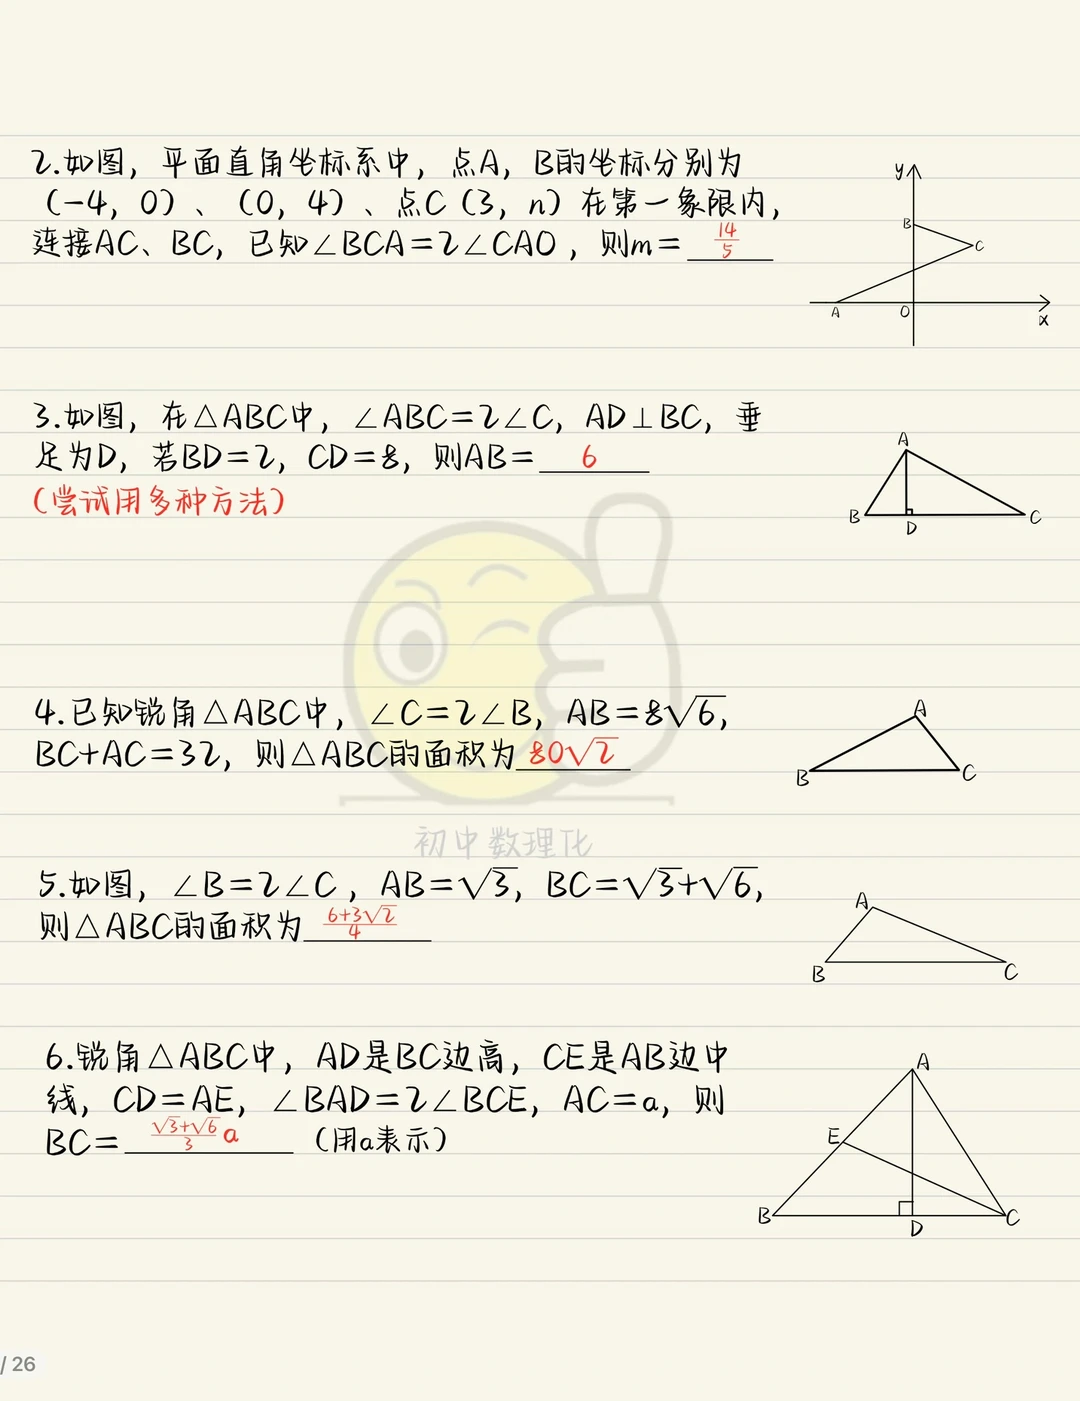 2.如图，平面直角坐标系中，点A，B的坐标分别为
（-4，0）、（0，4）、点C（3，n）在第一象限内，
连接AC、BC，已知∠BCA=2∠CAO，则m=14/5
y
B
C
A
O
x
3.如图，在△ABC中，∠ABC=2∠C，AD⊥BC，垂
足为D，若BD=2，CD=8，则AB=6
（尝试用多种方法）
A
B
D
C
4.已知锐角△ABC中，∠C=2∠B，AB=8√6，
BC+AC=32，则△ABC的面积为80√2
A
B
C
初中数理化
5.如图，∠B=2∠C，AB=√3，BC=√3+√6，
则△ABC的面积为(6+3√2)/4
A
B
C
6.锐角△ABC中，AD是BC边高，CE是AB边中
线，CD=AE，∠BAD=2∠BCE，AC=a，则
BC=(√3+√6)/3 a（用a表示）
A
E
B
D
C
/ 26